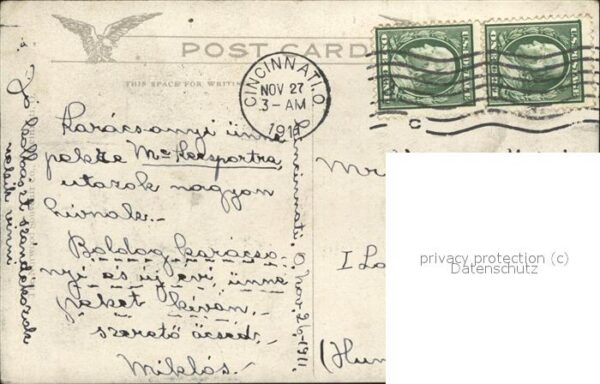 POST CARD
THIS SPACE FOR WRITING
CINCINNATI, O.
NOV 27
3-AM
1911
Karácsonyi ünne
pekre Mc Keesportra
utazok nagyon
hívnak.-
Boldog karácso-
nyi és új évi ünne
peket kíván.-
szerető öcséd:-
Miklós.-
Cincinnati. O. nov. 26-1911.
Jó kolbászt szándékozok
nekik vinni
Mr
I La
(Hun
privacy protection (c)
Datenschutz